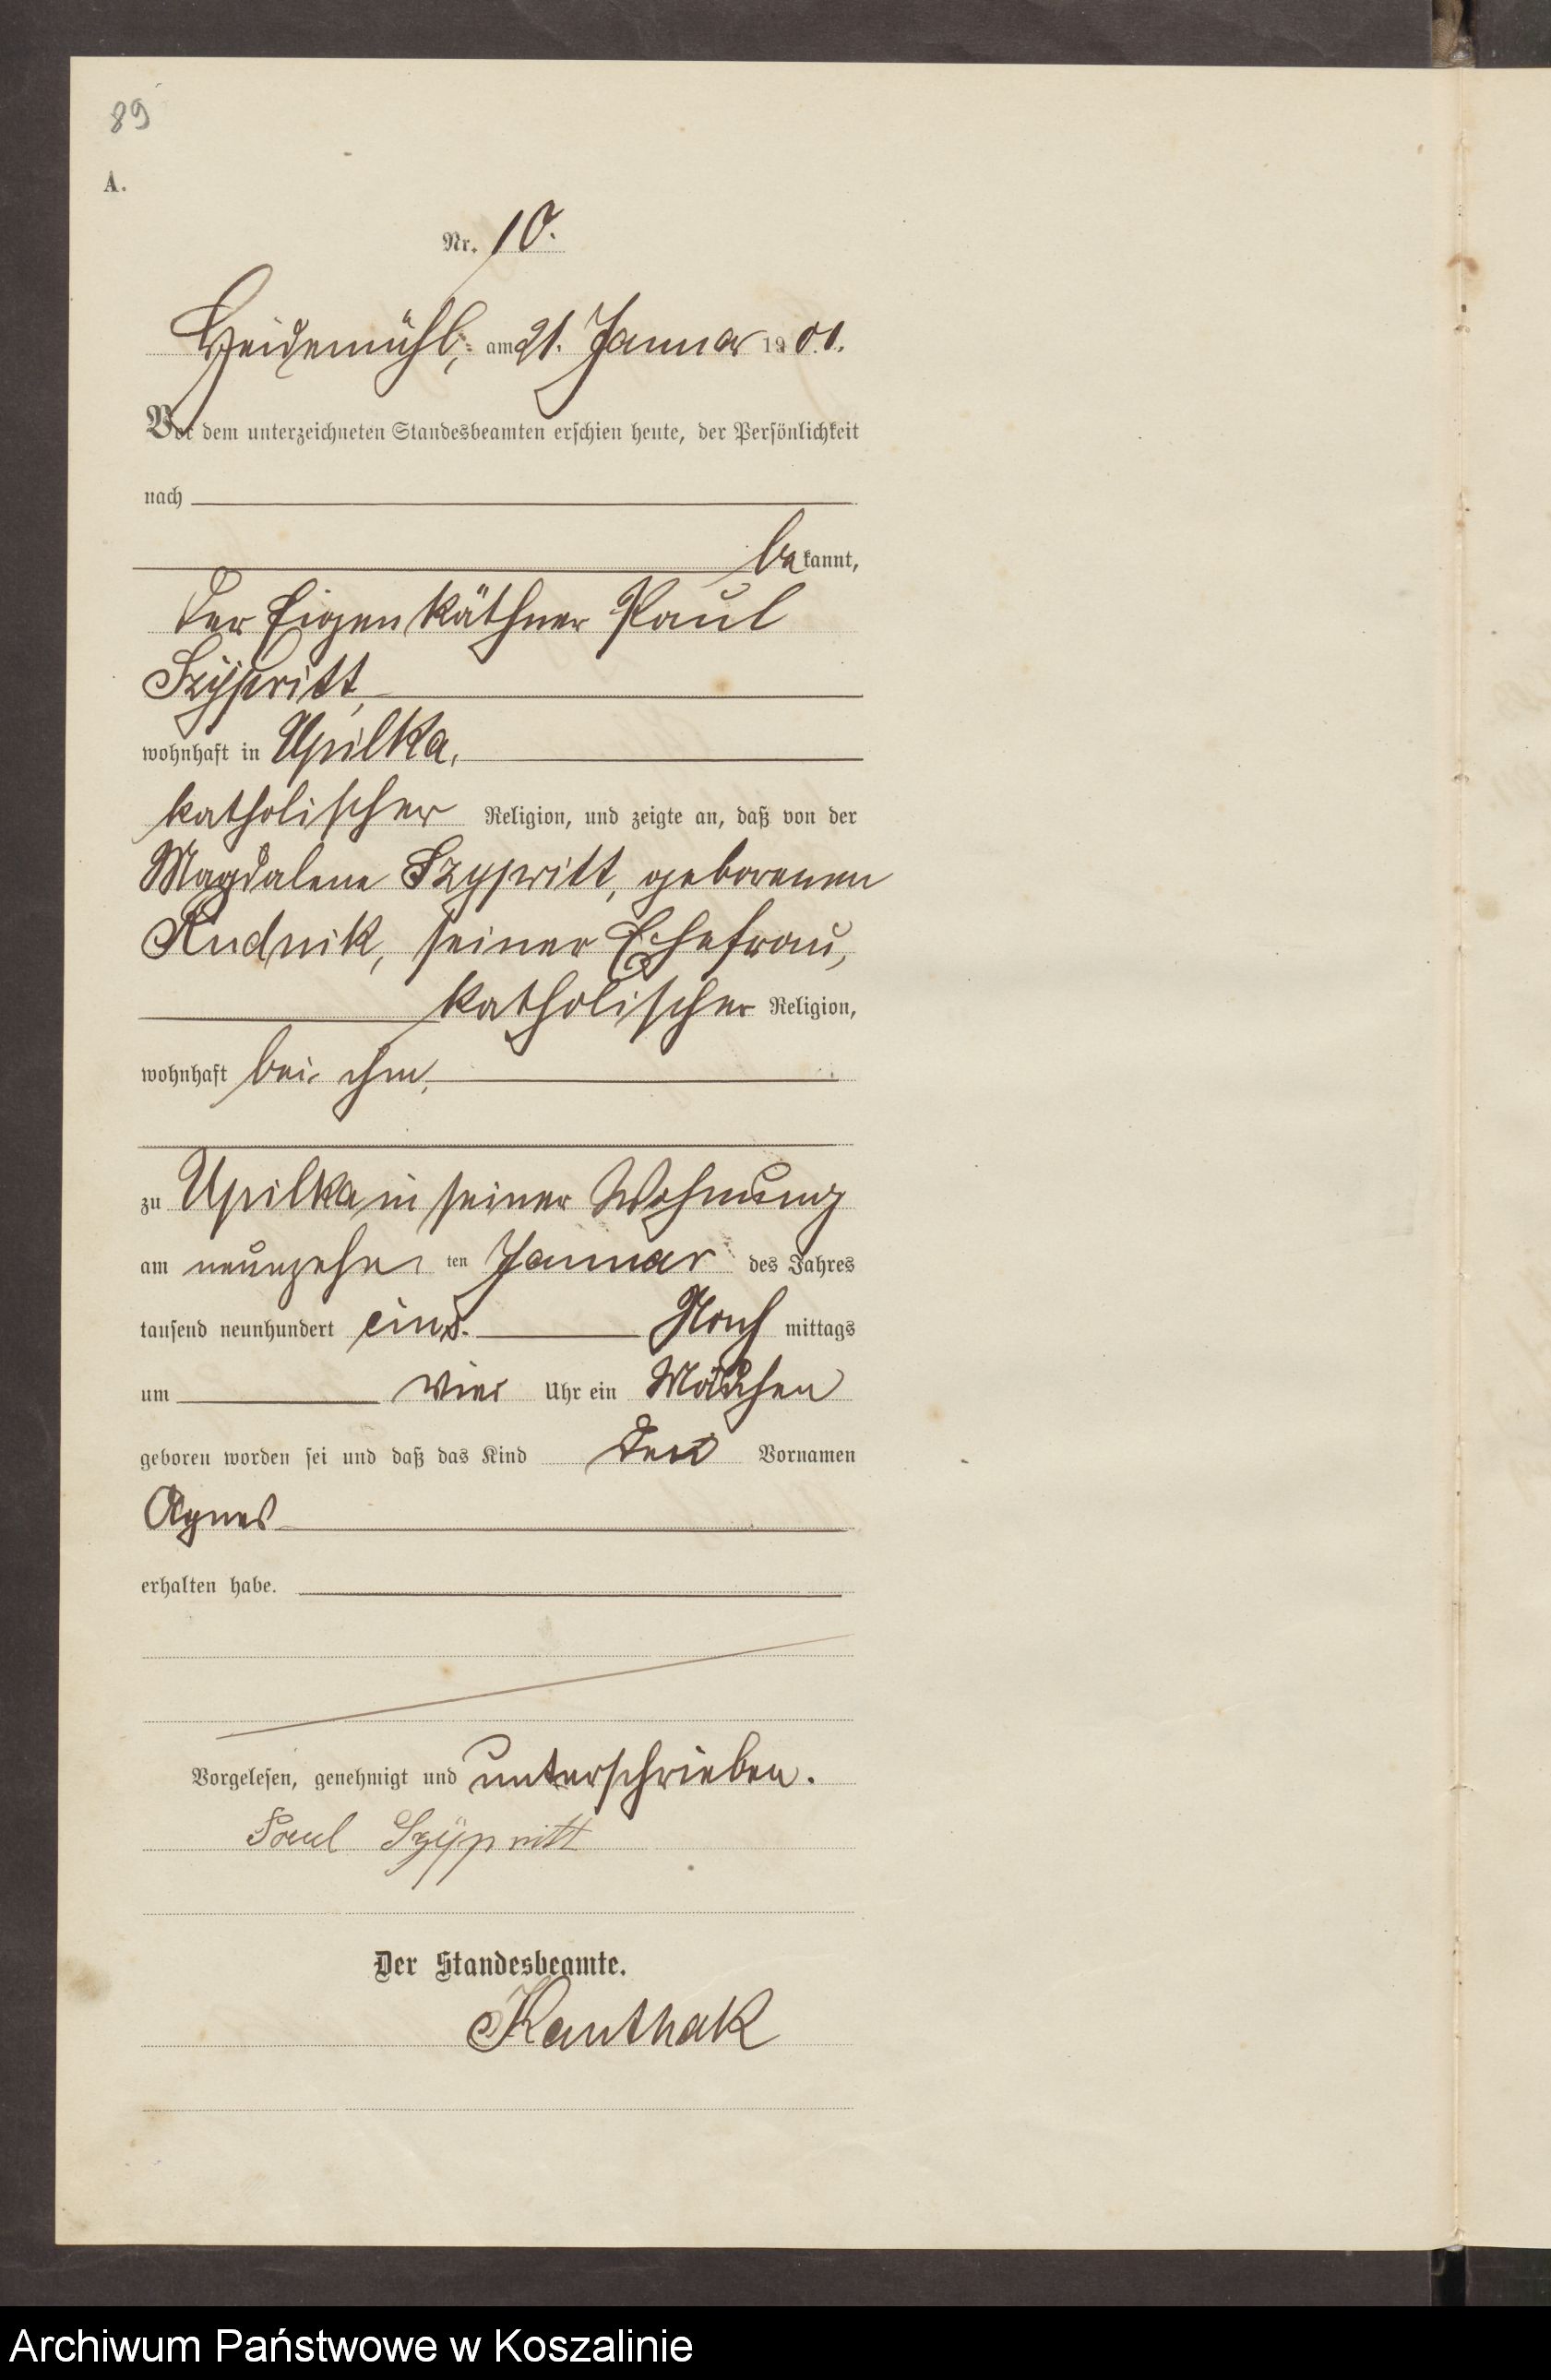 89
A.
Nr. 10.
Heidemühl, am 21. Januar 1901.
Vor dem unterzeichneten Standesbeamten erschien heute, der Persönlichkeit
nach
bekannt,
der Eigenkäthner Paul
Szypritt,
wohnhaft in Upilka,
katholischer Religion, und zeigte an, daß von der
Magdalene Szypritt, geborenen
Rudnik, seiner Ehefrau,
katholischer Religion,
wohnhaft bei ihm,
zu Upilka in seiner Wohnung
am neunzehnten Januar des Jahres
tausend neunhundert eins. Nachmittags
um vier Uhr ein Mädchen
geboren worden sei und daß das Kind den Vornamen
Agnes
erhalten habe.
Vorgelesen, genehmigt und unterschrieben.
Paul Szypritt
Der Standesbeamte.
Kanthak
Archiwum Państwowe w Koszalinie